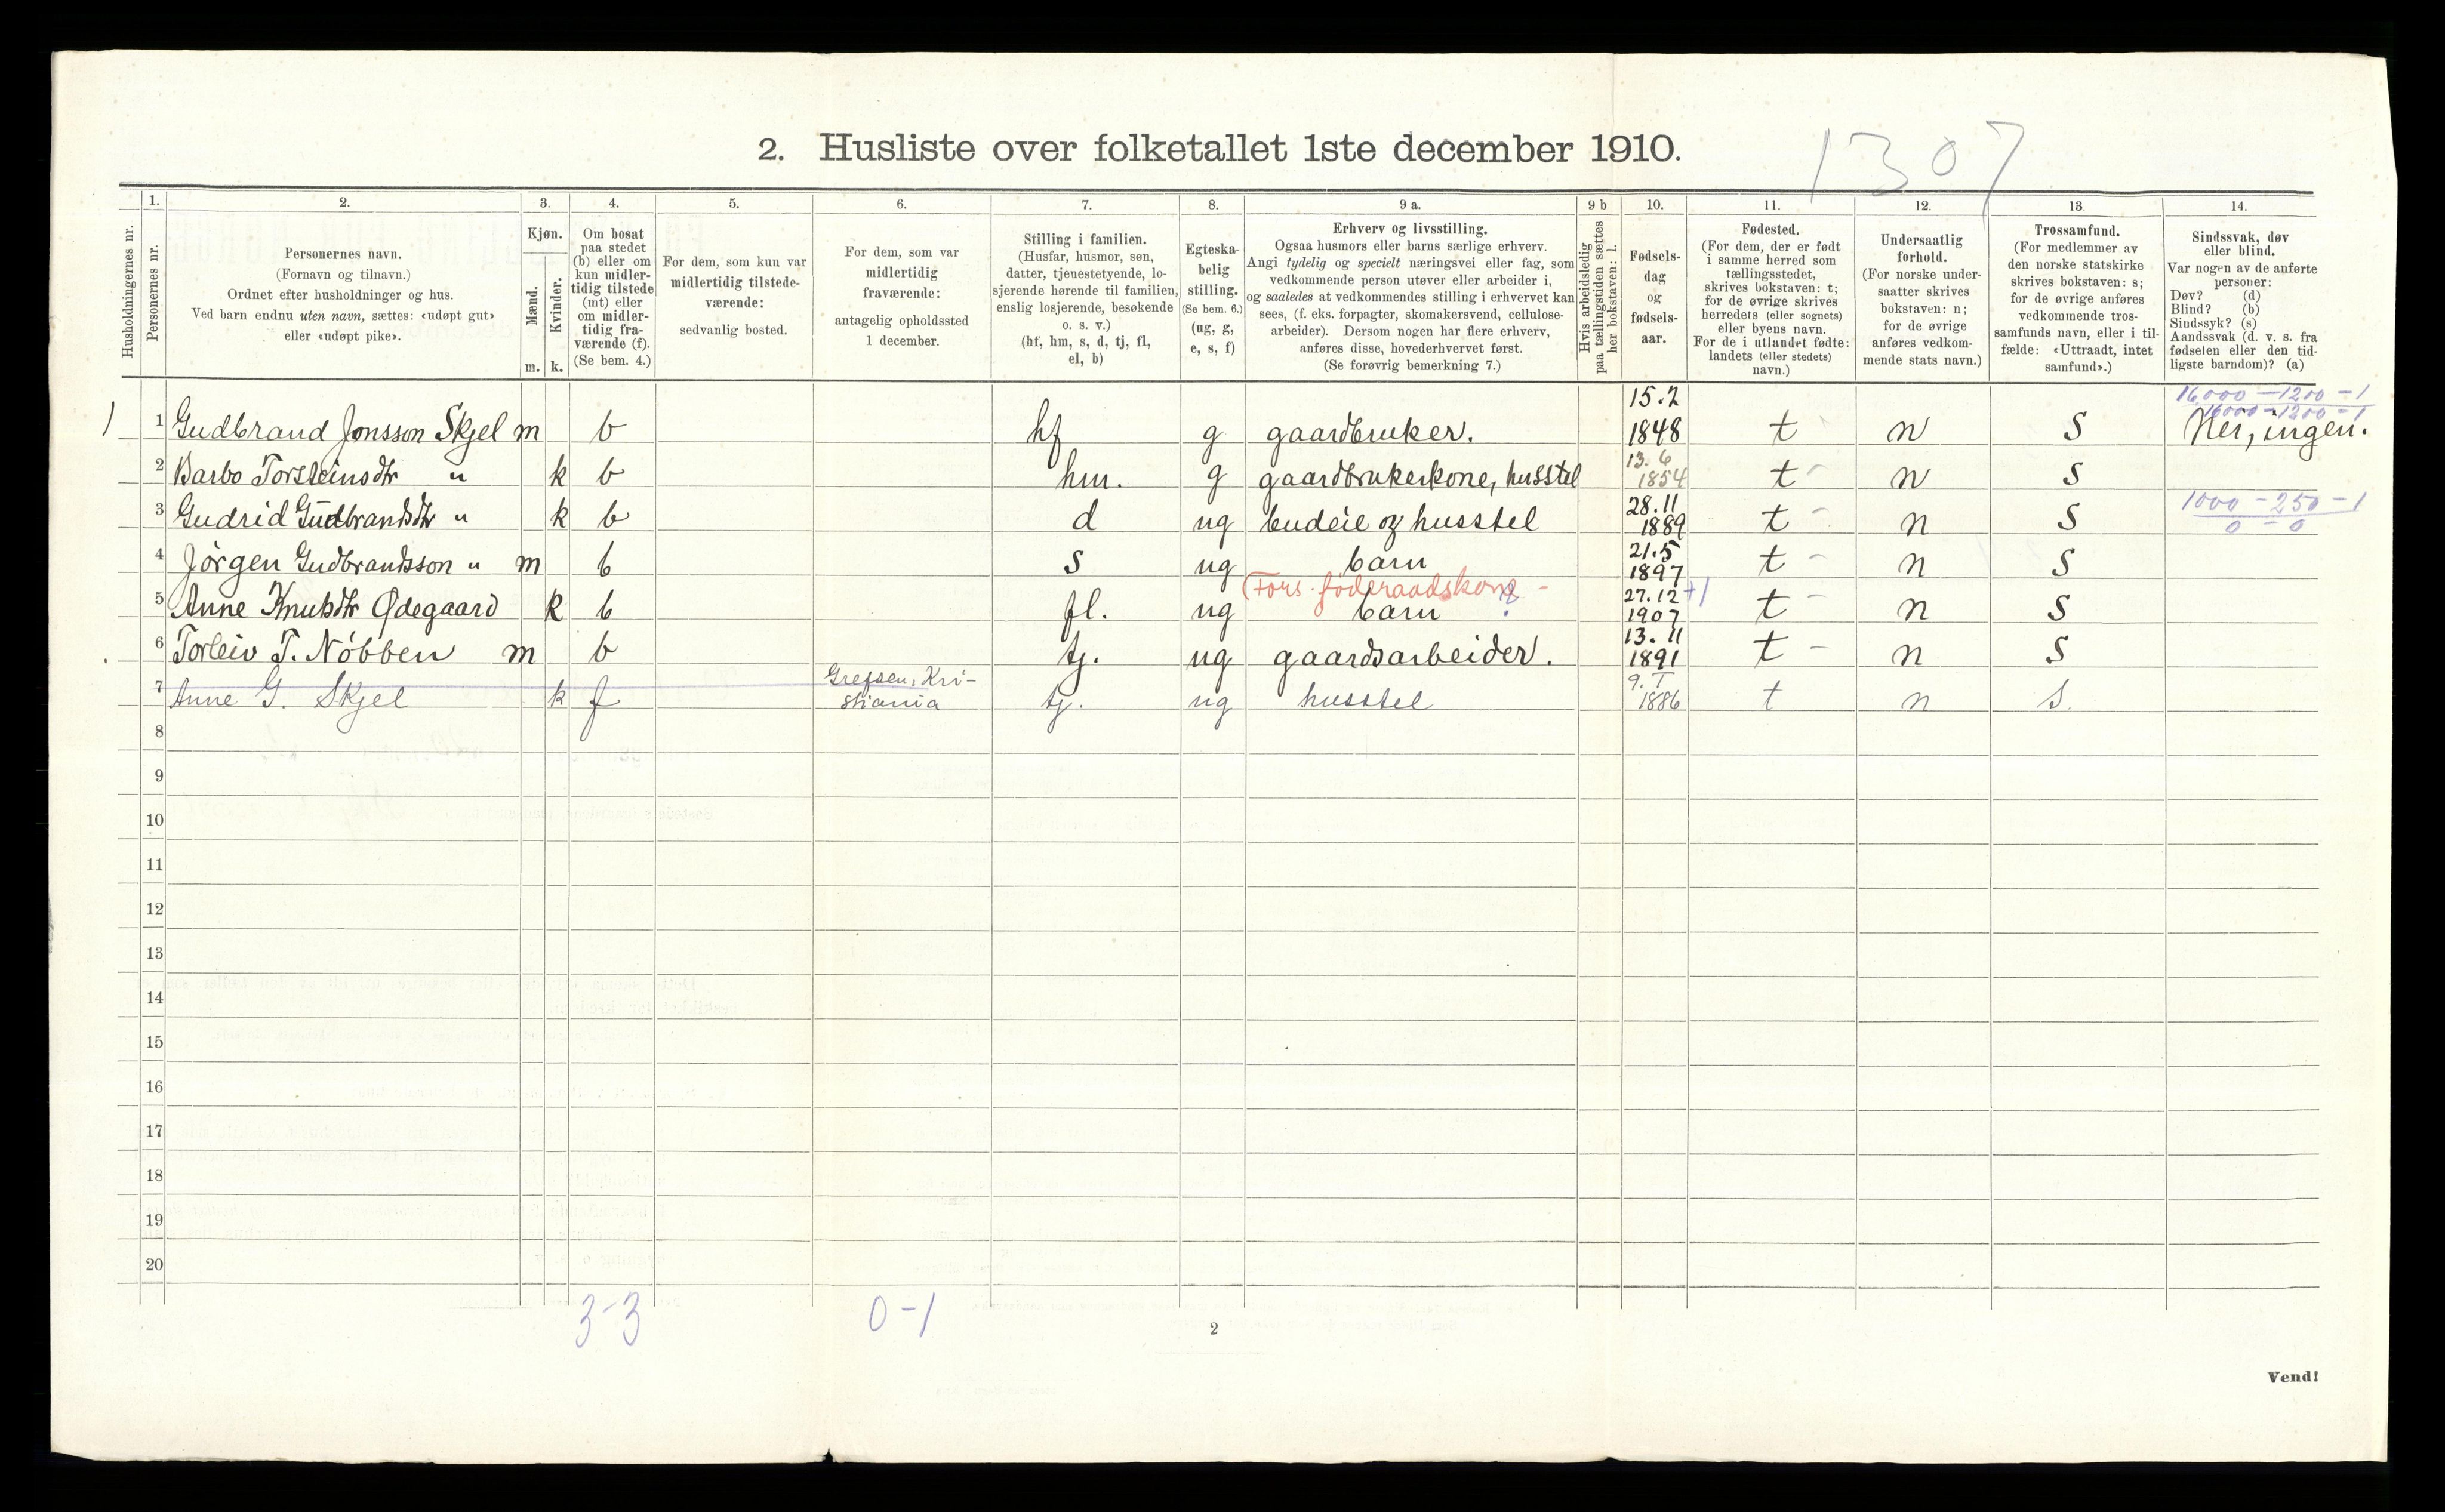 2. Husliste over folketallet 1ste december 1910.
1307
Husholdningernes nr.
1.
Personernes nr.
2.
Personernes navn.
(Fornavn og tilnavn.)
Ordnet efter husholdninger og hus.
Ved barn endnu uten navn, sættes: «udøpt gut»
eller «udøpt pike».
3.
Kjøn.
Mænd.
Kvinder.
m. k.
4.
Om bosat
paa stedet
(b) eller om
kun midler-
tidig tilstede
(mt) eller
om midler-
tidig fra-
værende (f).
(Se bem. 4.)
5.
For dem, som kun var
midlertidig tilstede-
værende:
sedvanlig bosted.
6.
For dem, som var
midlertidig
fraværende:
antagelig opholdssted
1 december.
7.
Stilling i familien.
(Husfar, husmor, søn,
datter, tjenestetyende, lo-
sjerende hørende til familien,
enslig losjerende, besøkende
o. s. v.)
(hf, hm, s, d, tj, fl,
el, b)
8.
Egteska-
belig
stilling.
(Se bem. 6.)
(ug, g,
e, s, f)
9 a.
Erhverv og livsstilling.
Ogsaa husmors eller barns særlige erhverv.
Angi tydelig og specielt næringsvei eller fag, som
vedkommende person utøver eller arbeider i,
og saaledes at vedkommendes stilling i erhvervet kan
sees, (f. eks. forpagter, skomakersvend, cellulose-
arbeider). Dersom nogen har flere erhverv,
anføres disse, hovederhvervet først.
(Se forøvrig bemerkning 7.)
9 b
Hvis arbeidsledig
paa tællingstiden sættes
her bokstaven: l.
10.
Fødsels-
dag
og
fødsels-
aar.
11.
Fødested.
(For dem, der er født
i samme herred som
tællingsstedet,
skrives bokstaven: t;
for de øvrige skrives
herredets (eller sognets)
eller byens navn.
For de i utlandet fødte:
landets (eller stedets)
navn.)
12.
Undersaatlig
forhold.
(For norske under-
saatter skrives
bokstaven: n;
for de øvrige
anføres vedkom-
mende stats navn.)
13.
Trossamfund.
(For medlemmer av
den norske statskirke
skrives bokstaven: s;
for de øvrige anføres
vedkommende tros-
samfunds navn, eller i til-
fælde: «Uttraadt, intet
samfund».)
14.
Sindssvak, døv
eller blind.
Var nogen av de anførte
personer:
Døv? (d)
Blind? (b)
Sindssyk? (s)
Aandssvak (d. v. s. fra
fødselen eller den tid-
ligste barndom)? (a)
16000 - 1200 - 1
16000 - 1200 - 1
1 1 Gudbrand Jonsson Skjel m b hf g gaardbruker. 15.2 1848 t n S Nei, ingen.
2 Barbo Torsteinsdtr " k b hm. g gaardbrukerkone, husstel 13.6 1854 t - n S
3 Gudrid Gudbrandsdtr " k b d ug budeie og husstel 28.11 1889 t - n S 1000 - 250 - 1
0 - 0
4 Jörgen Gudbrandsson " m b s ug barn 21.5 1897 t - n S
(Fors. föderaadskone -
5 Anne Knutsdtr Ødegaard k b fl. ug barn 27.12 1907 +1 t - n S
6 Torleiv T. Nöbben m b tj. ug gaardsarbeider. 13.11 1891 t - n S
7 Anne G. Skjel k f Grefsen, Kri-
stiania tj. ug husstel 9.1 1886 t n S.
8
9
10
11
12
13
14
15
16
17
18
19
20
3-3 0-1
2
Vend!